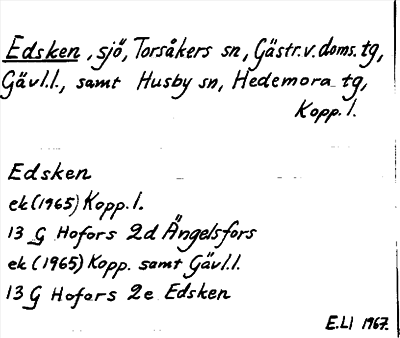 Edsken, sjö, Torsåkers sn, Gästr.v.doms.tg,
Gävl.l., samt Husby sn, Hedemora tg,
Kopp. l.
Edsken
ek (1965) Kopp. l.
13 G Hofors 2d Ängelsfors
ek (1965) Kopp. samt Gävl.l.
13 G Hofors 2e Edsken
E.LI 1967.